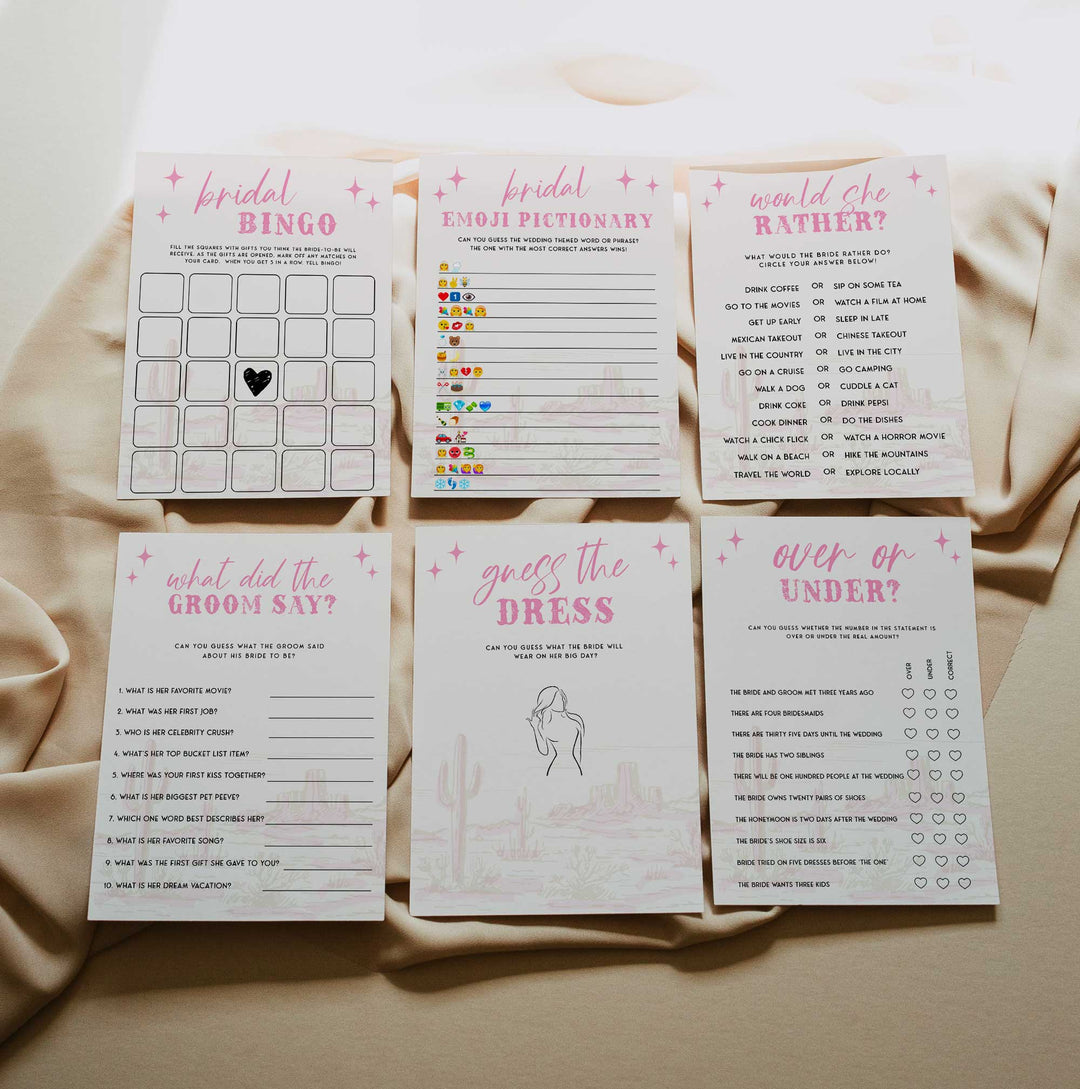 bridal
BINGO
FILL THE SQUARES WITH GIFTS YOU THINK THE BRIDE-TO-BE WILL
RECEIVE. AS THE GIFTS ARE OPENED, MARK OFF ANY MATCHES ON
YOUR CARD. WHEN YOU GET 5 IN A ROW, YELL BINGO!
bridal
EMOJI PICTIONARY
CAN YOU GUESS THE WEDDING THEMED WORD OR PHRASE?
THE ONE WITH THE MOST CORRECT ANSWERS WINS!
would she
RATHER?
WHAT WOULD THE BRIDE RATHER DO?
CIRCLE YOUR ANSWER BELOW!
DRINK COFFEE OR SIP ON SOME TEA
GO TO THE MOVIES OR WATCH A FILM AT HOME
GET UP EARLY OR SLEEP IN LATE
MEXICAN TAKEOUT OR CHINESE TAKEOUT
LIVE IN THE COUNTRY OR LIVE IN THE CITY
GO ON A CRUISE OR GO CAMPING
WALK A DOG OR CUDDLE A CAT
DRINK COKE OR DRINK PEPSI
COOK DINNER OR DO THE DISHES
WATCH A CHICK FLICK OR WATCH A HORROR MOVIE
WALK ON A BEACH OR HIKE THE MOUNTAINS
TRAVEL THE WORLD OR EXPLORE LOCALLY
what did the
GROOM SAY?
CAN YOU GUESS WHAT THE GROOM SAID
ABOUT HIS BRIDE TO BE?
1. WHAT IS HER FAVORITE MOVIE?
2. WHAT WAS HER FIRST JOB?
3. WHO IS HER CELEBRITY CRUSH?
4. WHAT'S HER TOP BUCKET LIST ITEM?
5. WHERE WAS YOUR FIRST KISS TOGETHER?
6. WHAT IS HER BIGGEST PET PEEVE?
7. WHICH ONE WORD BEST DESCRIBES HER?
8. WHAT IS HER FAVORITE SONG?
9. WHAT WAS THE FIRST GIFT SHE GAVE TO YOU?
10. WHAT IS HER DREAM VACATION?
guess the
DRESS
CAN YOU GUESS WHAT THE BRIDE WILL
WEAR ON HER BIG DAY?
over or
UNDER?
CAN YOU GUESS WHETHER THE NUMBER IN THE STATEMENT IS
OVER OR UNDER THE REAL AMOUNT?
OVER UNDER CORRECT
THE BRIDE AND GROOM MET THREE YEARS AGO
THERE ARE FOUR BRIDESMAIDS
THERE ARE THIRTY FIVE DAYS UNTIL THE WEDDING
THE BRIDE HAS TWO SIBLINGS
THERE WILL BE ONE HUNDRED PEOPLE AT THE WEDDING
THE BRIDE OWNS TWENTY PAIRS OF SHOES
THE HONEYMOON IS TWO DAYS AFTER THE WEDDING
THE BRIDE'S SHOE SIZE IS SIX
BRIDE TRIED ON FIVE DRESSES BEFORE 'THE ONE'
THE BRIDE WANTS THREE KIDS